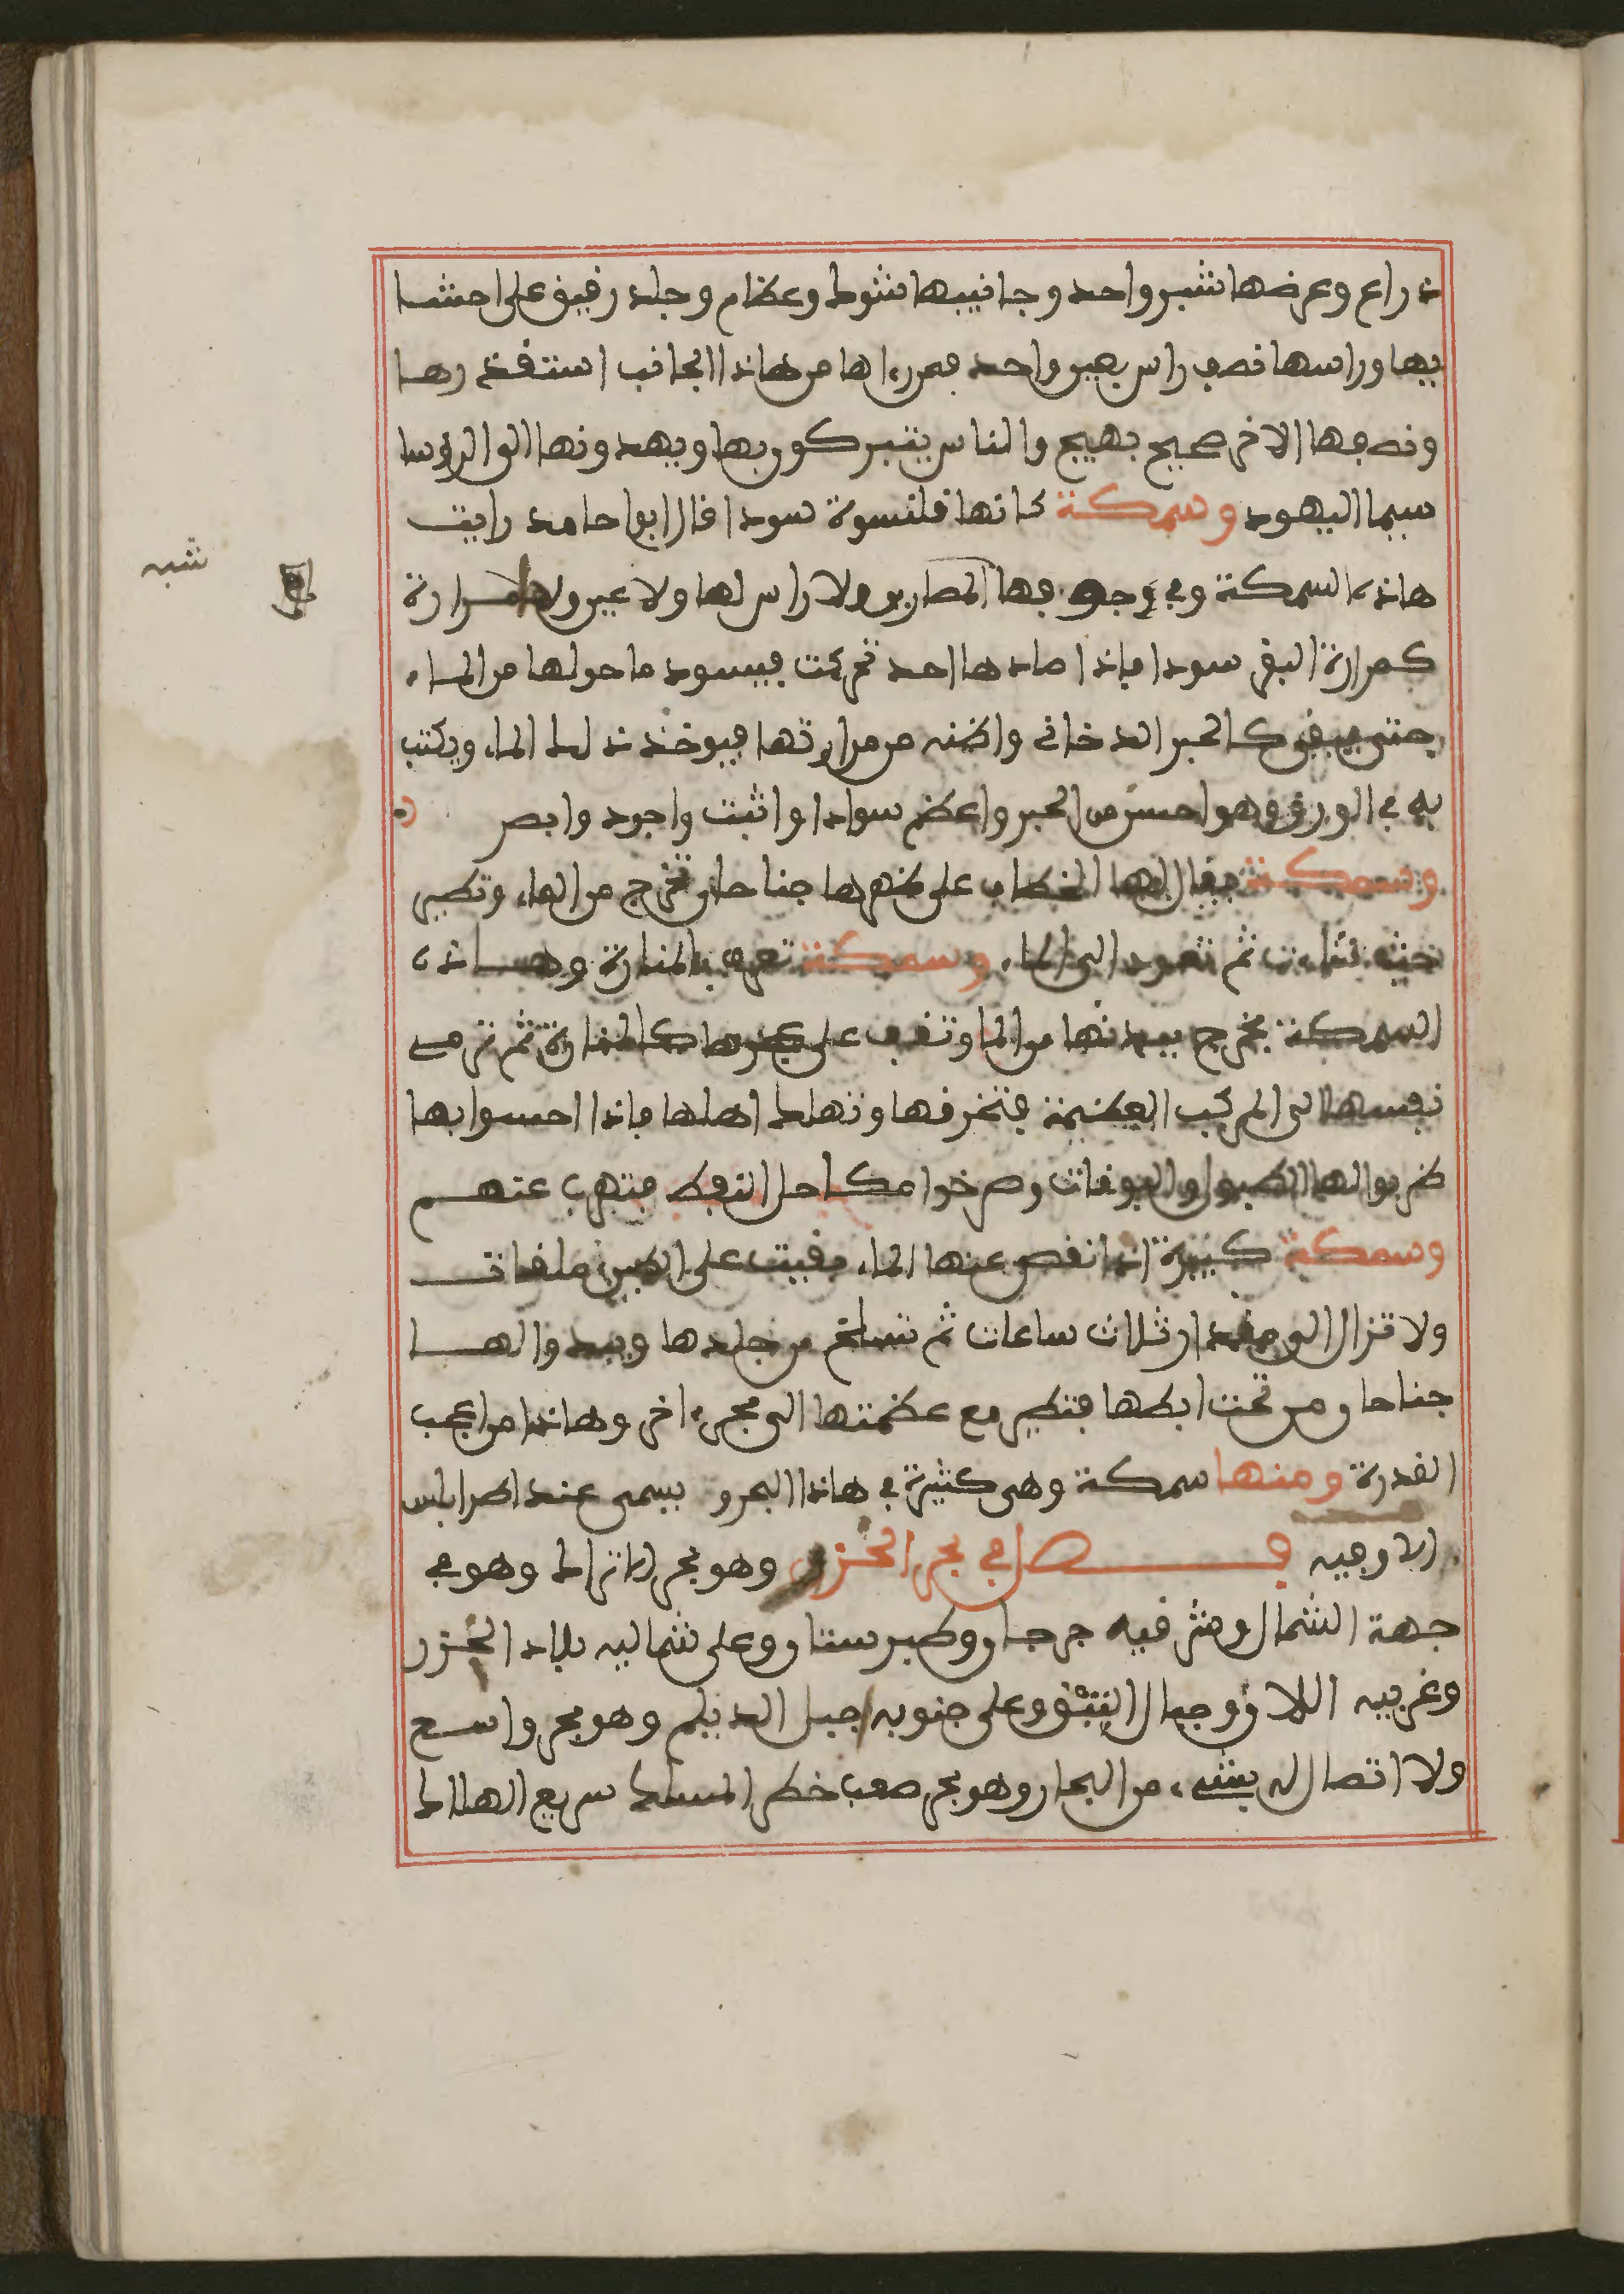 ذراع وعرضها شبر واحد وجانبيها شوط وعظام وجلد رقيق على احشا
يها وراسها نصف راس بعين واحد فمن رءاها من هاذا الجانب استقذرها
ونصفها الاخر صحيح بهيج والناس يتبركون بها ويهدونها الى الرؤسا
سيما اليهود وسمكة كانها قلنسوة سودا قال ابو حامد رايت
هاذه السمكة وفي جوفها المصارين ولا راس لها ولا عين ولها مرارة
كمرارة البقر سودا فاذا صادها احد تحركت فيسود ما حولها من الماء
حتى يبقى كالحبر الدخاني واظنه من مرارتها فيوخذ ذلك الماء ويكتب
به في الورق وهو احسن من الحبر واعظم سوادا واثبت واجود وابص
وسمكة يقال لها الخطاف على ظهرها جناحان تخرج من الماء وتطير
حيث شاءت ثم تعود الى الماء وسمكة تعرف بالمنارة وهـاذه
السمكة تخرج ببدنها من الما وتقف على عجزها كالمنارة ثم ترمي
نفسها الى المركب العظيمة فتخرقها وتهلك اهلها فاذا احسوا بها
ضربوا لها الطبول والبوقات وصرخوا مكاحل النفط فتهرب عنهم
وسمكة كبيرة اذا نقص عنها الماء بقيت على الطين ملقات
ولا تزال الى مقدار ثلاث ساعات ثم تنسلخ من جلدها ويبدوا لها
جناحان من تحت ابطها فتطير مع عظمتها الى بحر ءاخر وهاذا من اعجب
القدرة ومنها سمكة وهي كثيرة في هاذا البحر و يسمى عند اطرابلس
فصل في بحر الخزر وهو بحر الاتراك وهو في
جهة الشمال ومشرقيه جرجان وطبرستان وعلى شماليه بلاد الخزر
وغربيه اللان وجبال القبق وعلى جنوبه جبل الديلم وهو بحر واسع
ولا اتصال له بشيء من البحار وهو بحر صعب خطر المسلك سريع الهلاك
شبه